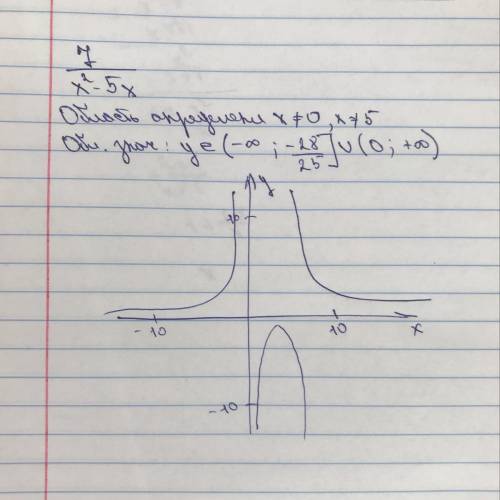 7
x² - 5x
Область определения x ≠ 0, x ≠ 5
Обл. знач: y ∈ (-∞ ; -28/25] ∪ (0 ; +∞)
y
10
-10
10
x
-10